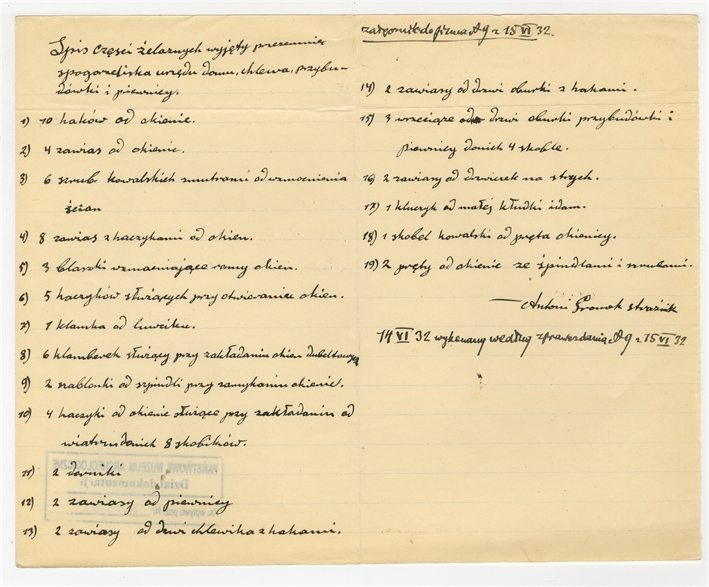 Spis części żelaznych wyjęty przezemnie
spogorzeliska urzędu domu, chlewa, przybu-
dówki i piewnicy.
1) 10 haków od okienic.
2) 4 zawias od okienic.
3) 6 szrub kowalskich smutrami od wzmocnienia
ścian
4) 8 zawias z haczykami od okien.
5) 3 blaszki wzmacniające ramy okien.
6) 5 haczyków służących przy otwieraniu okien.
7) 1 klamka od lufciku.
8) 6 klamberek służący przy zakładaniu okien dubeltowych
9) 2 szablonki od szpindli przy zamykaniu okienic.
10) 4 haczyki od okienic służące przy zakładaniu od
wiatru donich 8 skobików.
11) 2
12) 2 zawiasy od piewnicy
13) 2 zawiasy od drzwi chlewika z hakami.
PAŃSTWOWE MUZEUM ARCHEOLOGICZNE
Dział dokumentacji
załącznik do pisma № 9 z 15 VI 32.
14) 2 zawiasy od drzwi oburki z hakami.
15) 3 wrzeciądze od drzwi oburki przybudówki i
piewnicy donich 4 skoble.
16) 2 zawiasy od dzwiczek na strych.
17) 1 kluczyk od małej kłudki idam.
18) 1 skobel kowalski od pręta okionicy.
19) 2 pręty od okienic ze śpindlami i szrubami.
Antoni strażnik
14 VI 32 wykonany według sprawozdania № 9 z 15 VI 32